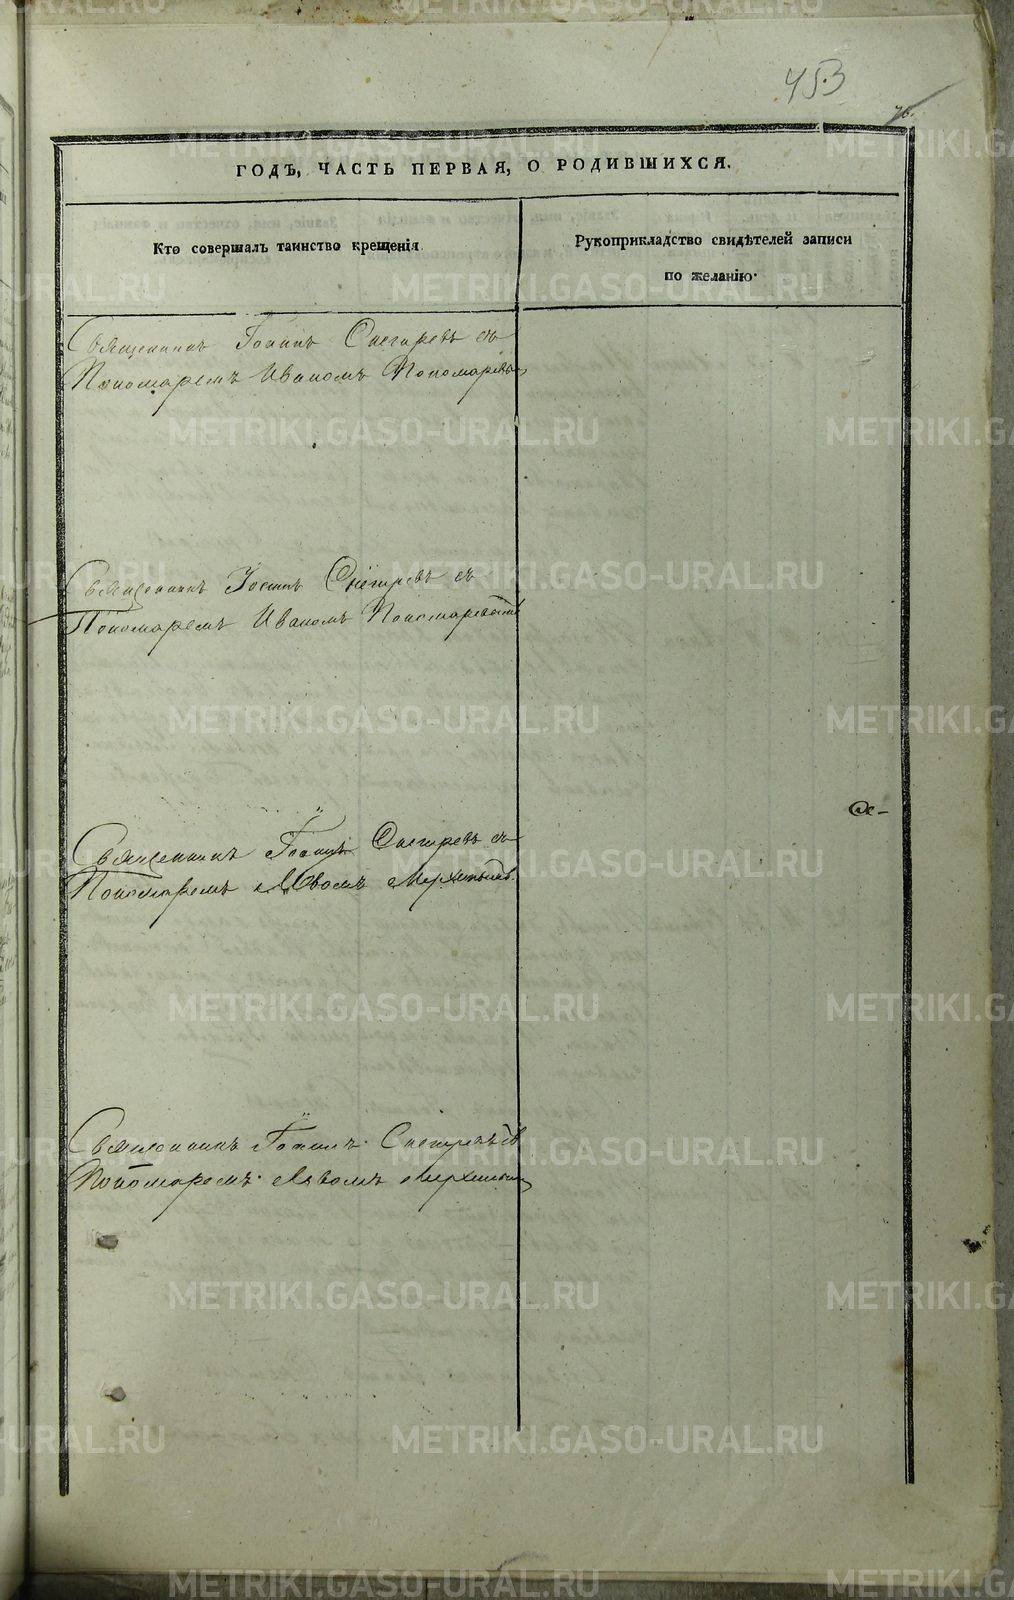 453
76.
ГОДЪ, ЧАСТЬ ПЕРВАЯ, О РОДИВШИХСЯ.
Кто совершалъ таинство крещенія.
Рукоприкладство свидѣтелей записи
по желанію.
Священникъ Іоаннъ Снегиревъ съ
Пономаремъ Иваномъ Пономаревы
Священникъ Іоаннъ Снегиревъ съ
Пономаремъ Иваномъ Пономаревымъ
Священникъ Іоаннъ Снегиревъ съ
Пономаремъ
Священникъ Іоаннъ Снегиревъ
Пономаремъ
METRIKI.GASO-URAL.RU